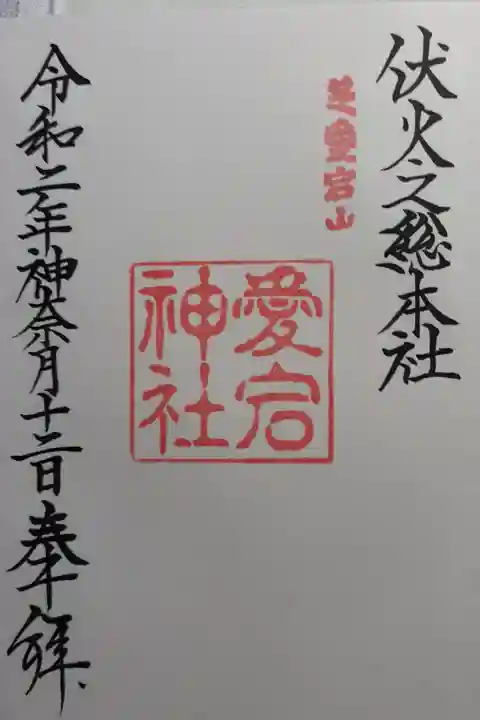 伏火之總本社
芝愛宕山
愛宕
神社
令和二年神奈月十二日奉拝